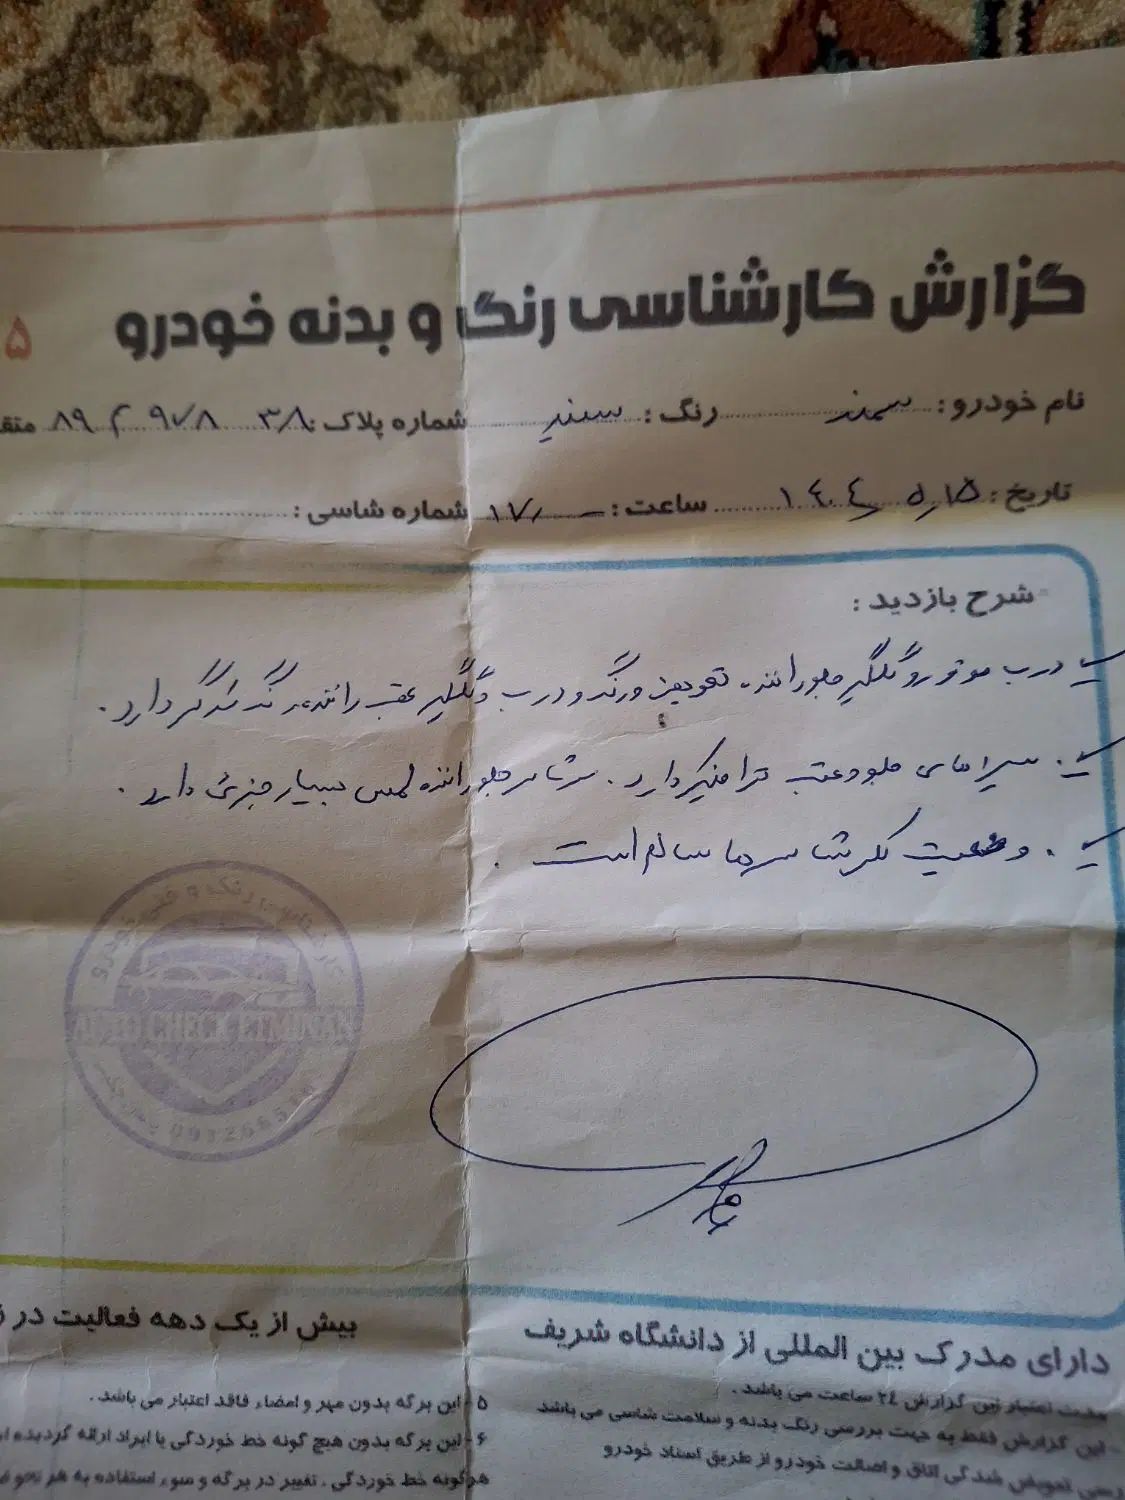 گزارش کارشناسی رنگ و بدنه خودرو
۵
نام خودرو: سمند رنگ: سفید شماره پلاک: ۸۹ م ۹۷۸ ۳۸ متقا
تاریخ: ۱۴۰۴٫۵٫۱۵ ساعت: ۱۷٫ شماره شاسی:
شرح بازدید:
درب موتور و گلگیر جلو راننده تعویض و رنگ و درب و گلگیر عقب راننده رنگ دارد.
سینی های جلو و عقب ترامیگیر دارد. سرشاسی جلو راننده لمس بسیار جزئی دارد.
وضعیت کلی شاسی ها سالم است.
کارشناسی رنگ و فنی خودرو
AUTO CHECK ETMINAN
دارای مدرک بین المللی از دانشگاه شریف
بیش از یک دهه فعالیت در
مدت اعتبار این گزارش ۲۴ ساعت می باشد.
این گزارش فقط به جهت بررسی رنگ بدنه و سلامت شاسی می باشد
تعویض شدگی اتاق و اصالت خودرو از طریق اسناد خودرو
۵-این برگه بدون مهر و امضاء فاقد اعتبار می باشد.
۶-این برگه بدون هیچ گونه خط خوردگی یا ایراد ارائه گردیده
هرگونه خط خوردگی، تغییر در برگه و سوء استفاده به هر نحو